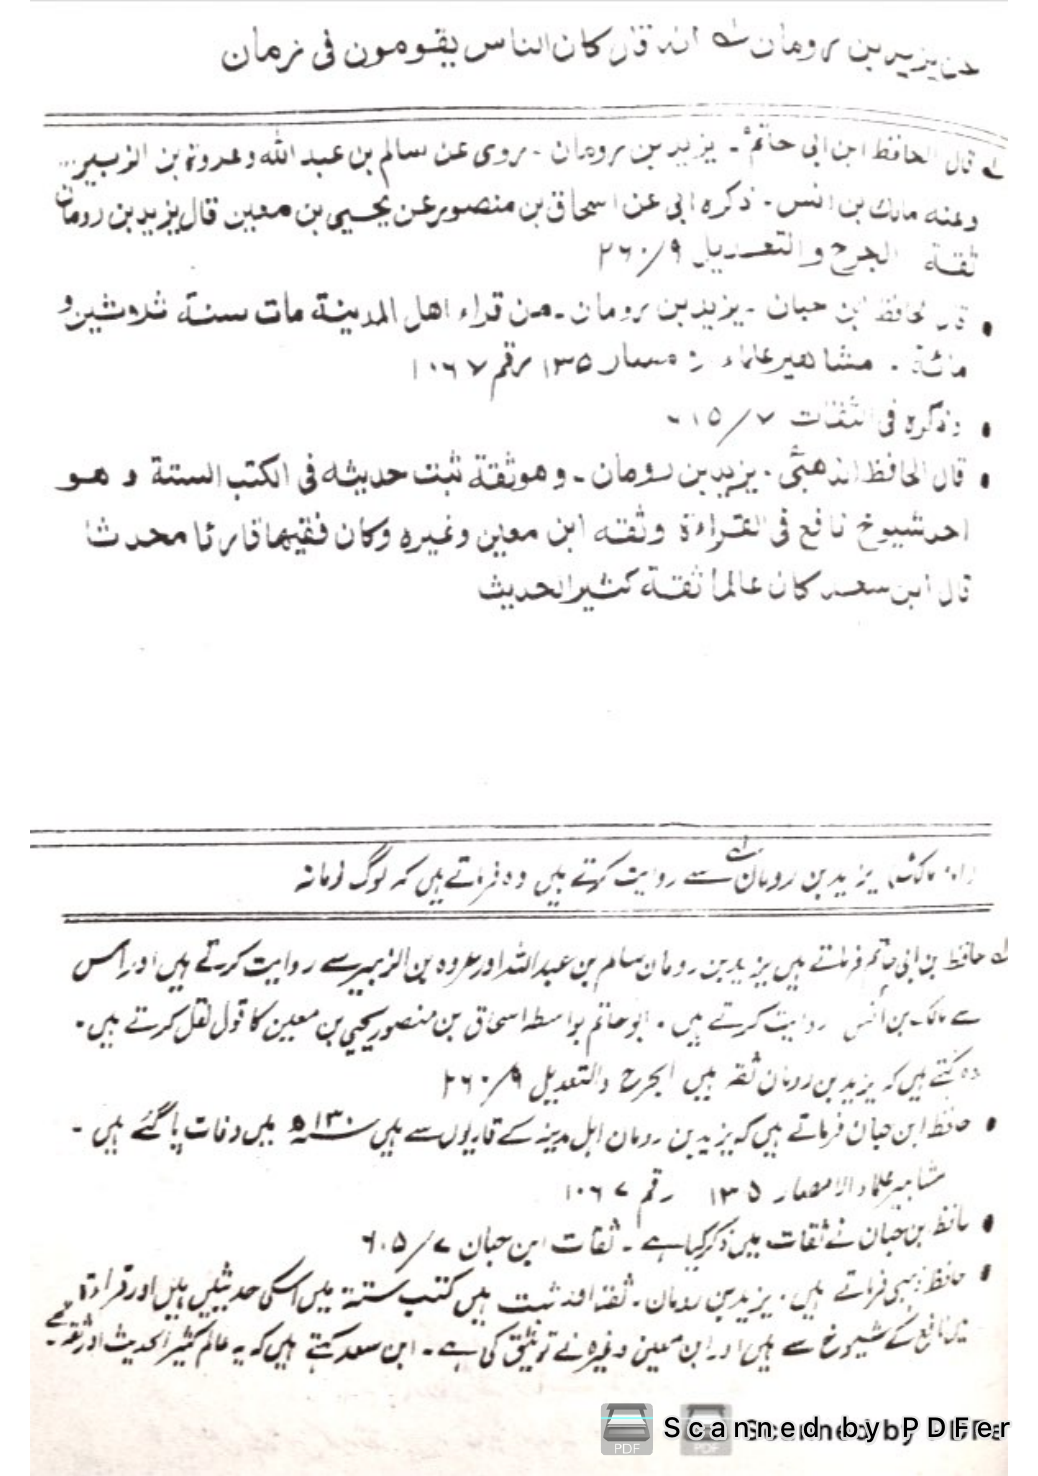 عن يزيد بن رومان له انه قال كان الناس يقومون فى زمان
له قال الحافظ ابن ابى حاتم ۔ يزيد بن رومان ۔ روى عن سالم بن عبد الله وعروة بن الزبير...
وعنه مالك بن انس ۔ ذكره ابى عن اسحاق بن منصور عن يحيى بن معين قال يزيد بن رومان
ثقة الجرح والتعديل ۲۶۰/۹
• قال الحافظ ابن حبان ۔ يزيد بن رومان ۔ من قراء اهل المدينة مات سنة ثلاثين و
مائة ۔ مشاهير علماء ۱۳۵ رقم ۱۰۶۷
• وذكره فى الثقات ۶۱۵/۷
• قال الحافظ الذهبى ۔ يزيد بن رومان ۔ وهو ثقة ثبت حديثه فى الكتب الستة و هو
احد شيوخ نافع فى القراءة وثقه ابن معين وغيره وكان فقيها قارئا محدثا
قال ابن سعد كان عالما ثقة كثير الحديث
مالک) یزید بن رومان لہ سے روایت کرتے ہیں وہ فرماتے ہیں کہ لوگ زمانہ
لہ حافظ بن ابی حاتم فرماتے ہیں یزید بن رومان سالم بن عبداللہ اور عروہ بن الزبیر سے روایت کرتے ہیں اور اس
سے مالک بن انس روایت کرتے ہیں ۔ ابو حاتم بواسطہ اسحاق بن منصور یحیی بن معین کا قول نقل کرتے ہیں ۔
وہ کہتے ہیں کہ یزید بن رومان ثقہ ہیں الجرح والتعدیل ۲۶۰/۹
• حافظ ابن حبان فرماتے ہیں کہ یزید بن رومان اہل مدینہ کے قاریوں سے ہیں سنہ ۱۳۰ھ میں وفات پا گئے ہیں ۔
مشاہیر علماء الامصار ۱۳۵ رقم ۱۰۶۷
• حافظ بن حبان نے ثقات میں ذکر کیا ہے ۔ ثقات ابن حبان ۶۰۵/۷
• حافظ ذہبی فرماتے ہیں ۔ یزید بن رومان ۔ ثقہ اور ثبت ہیں کتب ستہ میں اسکی حدیثیں ہیں اور قراءۃ
میں نافع کے شیوخ سے ہیں اور ابن معین وغیرہ نے توثیق کی ہے ۔ ابن سعد کہتے ہیں کہ یہ عالم کثیر الحدیث اور ثقہ تھے ۔
Scanned by PDFer